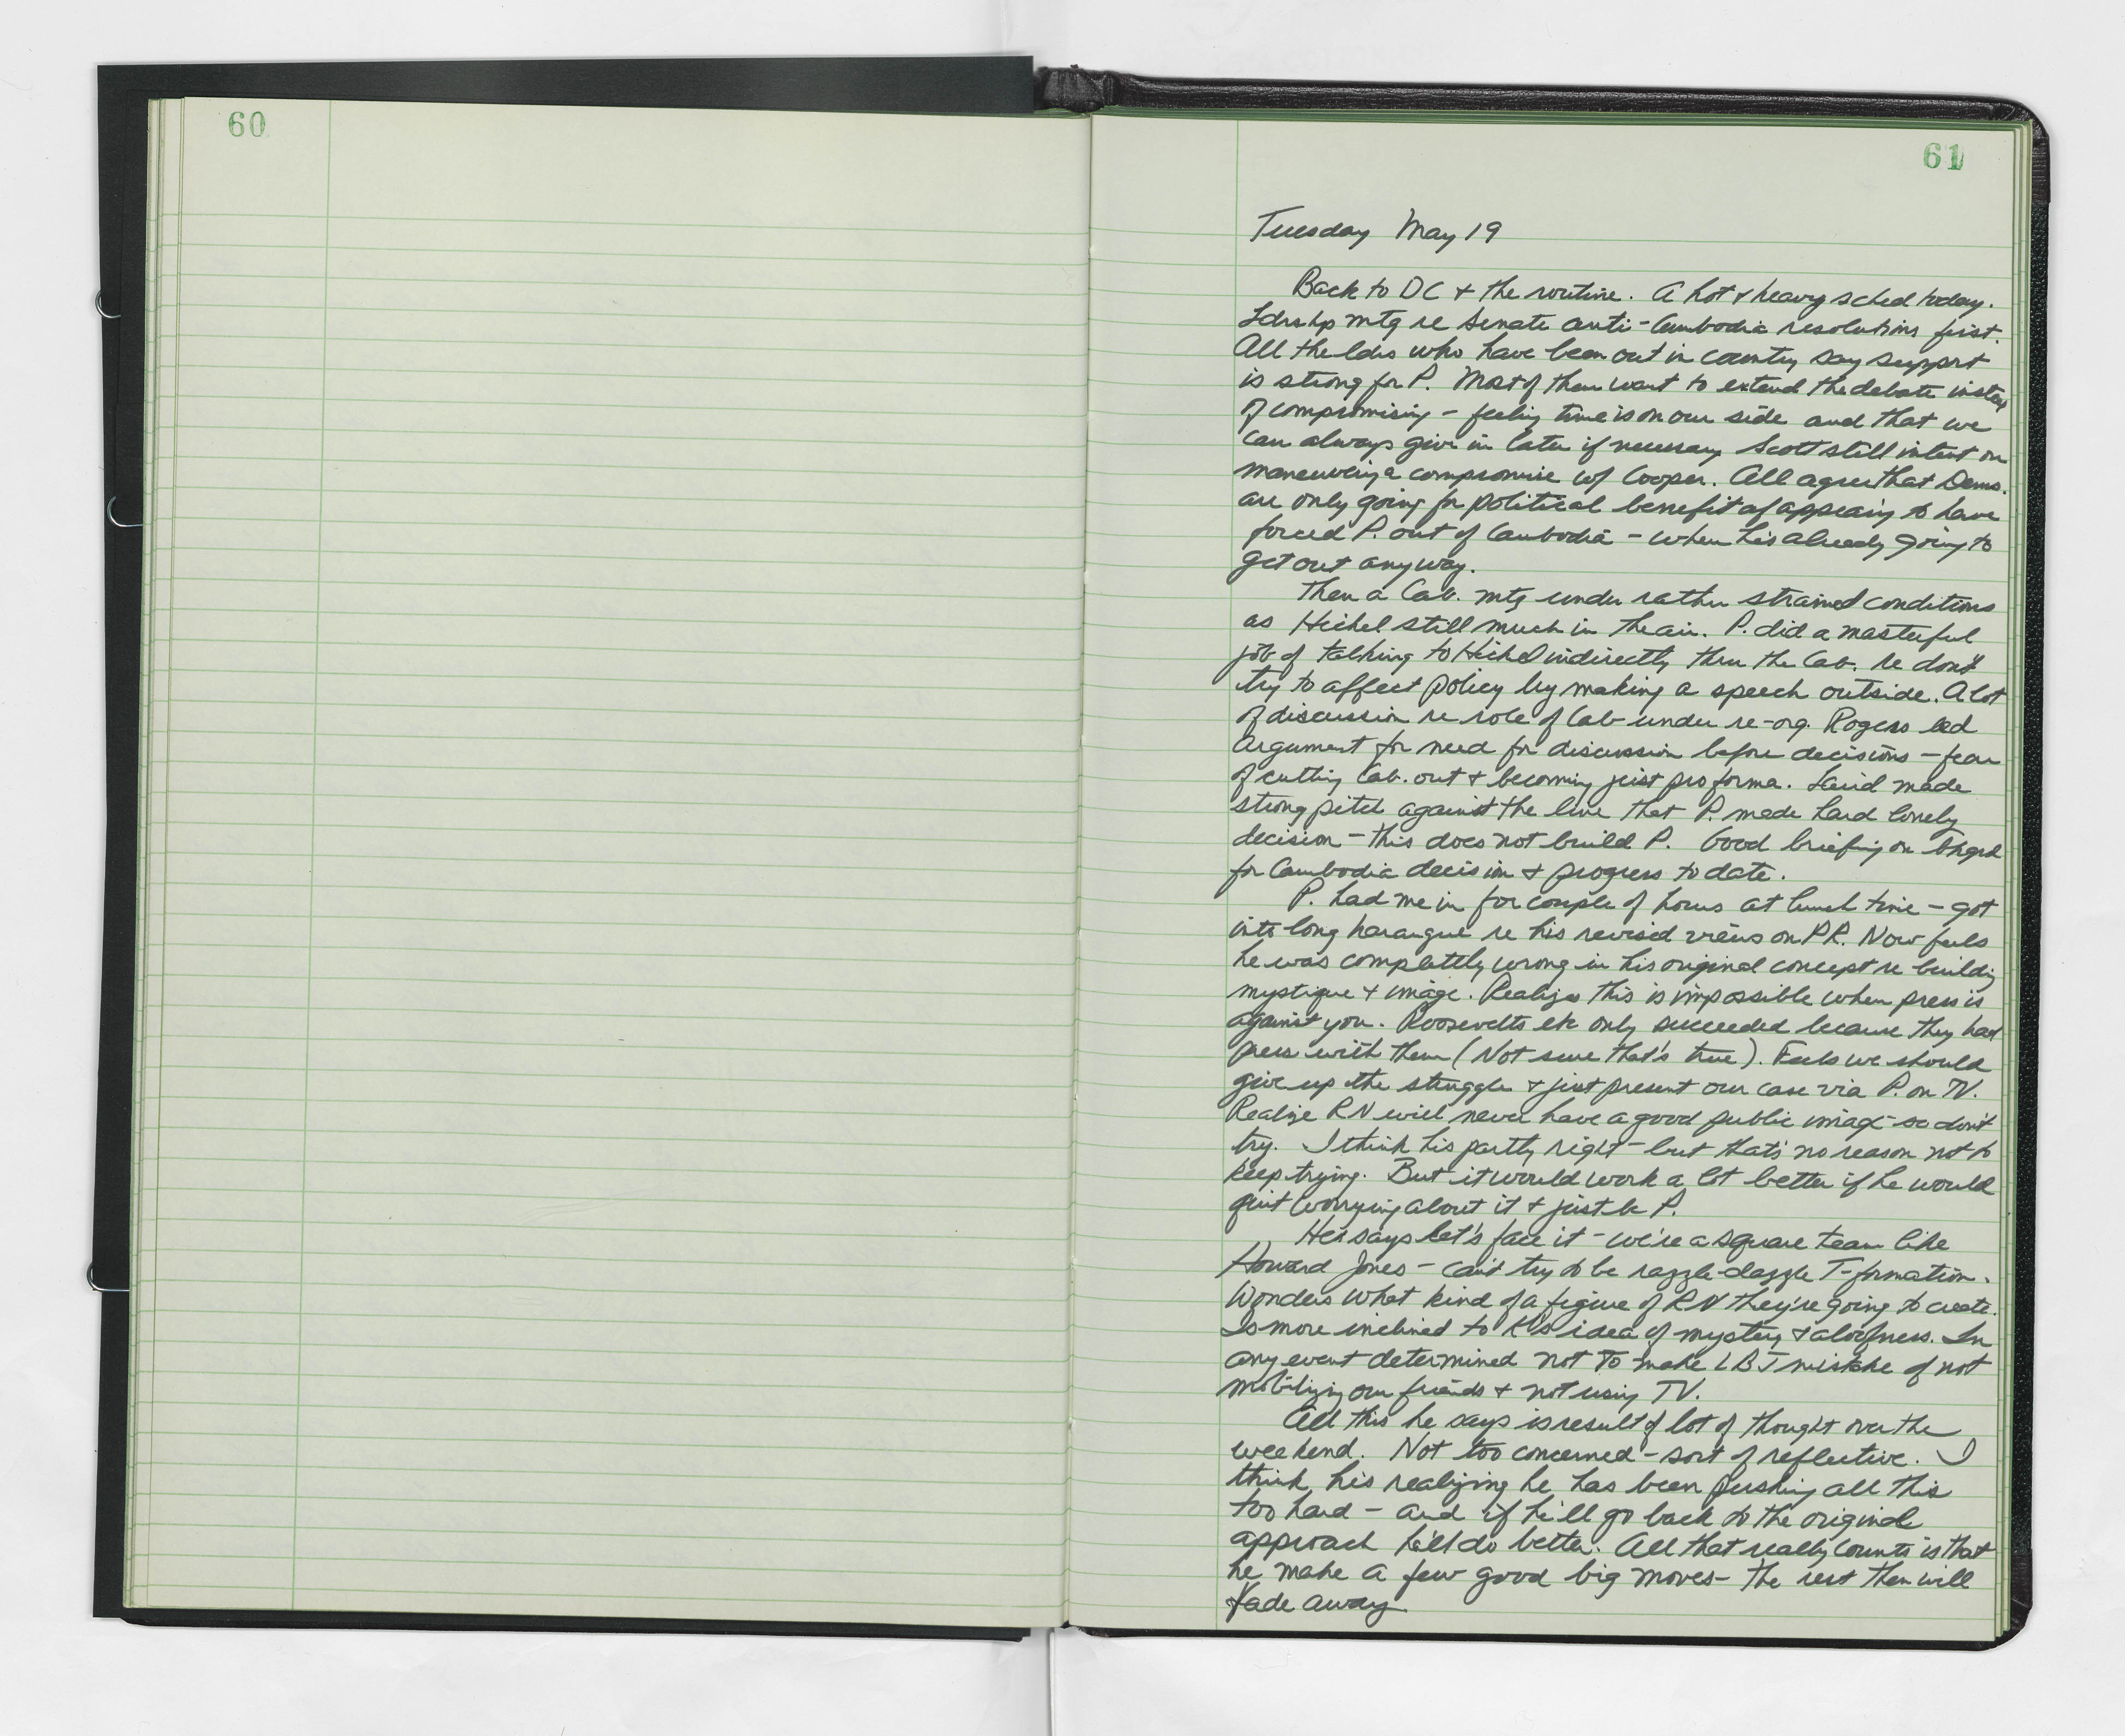 60
61
Tuesday May 19
Back to DC & the routine. A hot & heavy sched today.
Ldrshp mtg re Senate anti-Cambodia resolutions first.
All the ldrs who have been out in country say support
is strong for P. Most of them want to extend the debate instead
of compromising - feeling time is on our side and that we
can always give in later if necessary Scott still intent on
maneuvering a compromise w/ Cooper. All agree that Dems.
are only going for political benefit of appearing to have
forced P. out of Cambodia - when he's already going to
get out anyway.
Then a Cab. mtg under rather strained conditions
as Hickel still much in the air. P. did a masterful
job of talking to Hickel indirectly thru the Cab. re don't
try to affect policy by making a speech outside. A lot
of discussion re role of Cab under re-org. Rogers led
argument for need for discussion before decisions - fear
of cutting Cab. out & becoming just pro forma. Laird made
strong pitch against the line that P. made hard lonely
decision - this does not build P. Good briefing on bkgrd
for Cambodia decision & progress to date.
P. had me in for couple of hours at lunch time - got
into long harangue re his revised views on PR. Now feels
he was completely wrong in his original concept re building
mystique & image. Realizes this is impossible when press is
against you. Roosevelts etc only succeeded because they had
press with them (Not sure that's true). Feels we should
give up the struggle & just present our case via P. on TV.
Realize RN will never have a good public image - so don't
try. I think he's partly right - but that's no reason not to
keep trying. But it would work a lot better if he would
quit worrying about it & just be P.
He says let's face it - we're a square team like
Howard Jones - can't try to be razzle-dazzle T-formation.
Wonders what kind of a figure of RN they're going to create.
Is more inclined to K's idea of mystery & aloofness. In
any event determined not to make LBJ mistake of not
mobilizing our friends & not using TV.
All this he says is result of lot of thought over the
weekend. Not too concerned - sort of reflective. I
think he's realizing he has been pushing all this
too hard - and if he'll go back to the original
approach he'll do better. All that really counts is that
he make a few good big moves - the rest then will
fade away